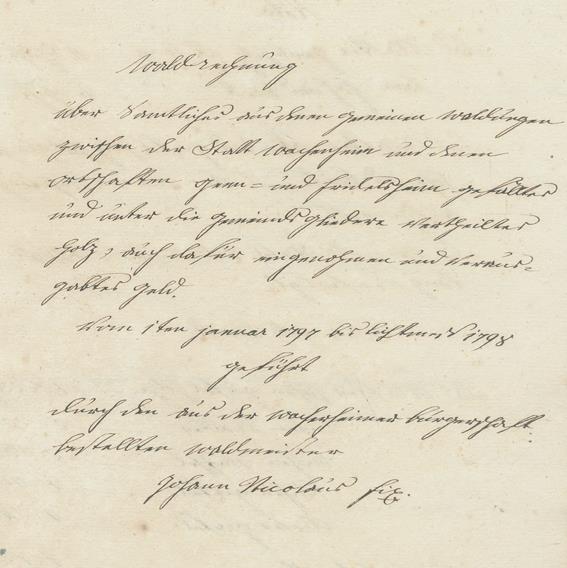 Waldrechnung
über Samtliches aus denen gemeinen Waldungen
zwischen der Statt Wachenheim und denen
ortschaften Genn- und Fridelsheim gefälltes
und unter die gemeinds glieder vertheiltes
Holz, auch dafür eingenohmen und veraus-
gabtes Geld.
Vom 1ten januar 1797 bis lichtmess 1798
geführt
durch den aus der Wachenheimer bürgerschaft
bestellten Waldmeister
Johann Nicolaus Fix.